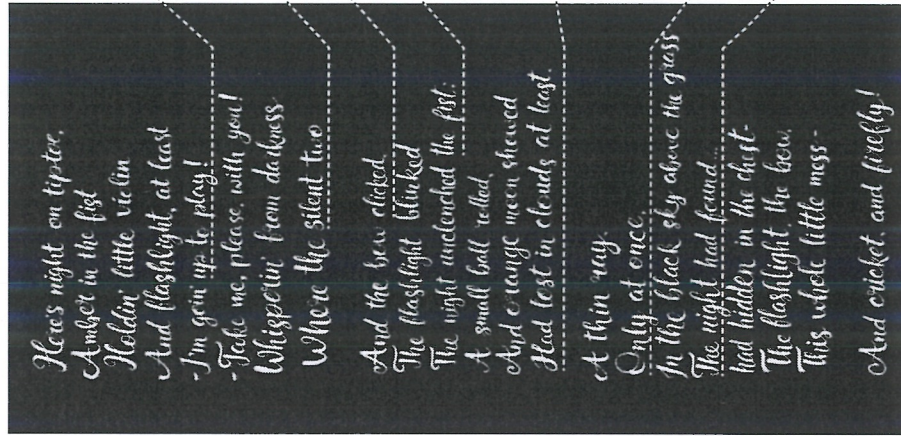 Here's night on tiptoe,
Amber in the fist
Holdin' little violin
And flashlight, at least
- I'm goin' up to play!
- Take me, please, with you!
Whisperin' from darkness
Where the silent two
And the bow clicked,
The flashlight blinked
The night unclenched the fist:
A small ball rolled,
And orange moon showed
Had lost in clouds at least.
A thin ray.
Only at once,
In the black sky above the grass
The night had found...
had hidden in the chest-
The flashlight, the bow,
This whole little mess-
And cricket, and firefly!